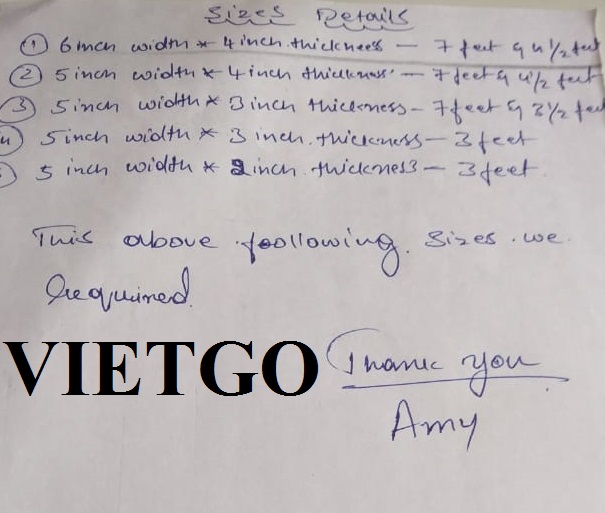 Sizes Details
① 6 inch width * 4 inch thickness – 7 feet & 4 1/2 feet
② 5 inch width * 4 inch thickness – 7 feet & 4 1/2 feet
③ 5 inch width * 3 inch thickness – 7 feet & 3 1/2 feet
④ 5 inch width * 3 inch thickness – 3 feet
5 inch width * 2 inch thickness – 3 feet
This above foollowing sizes we
Required.
VIETGO
Thank you
Amy